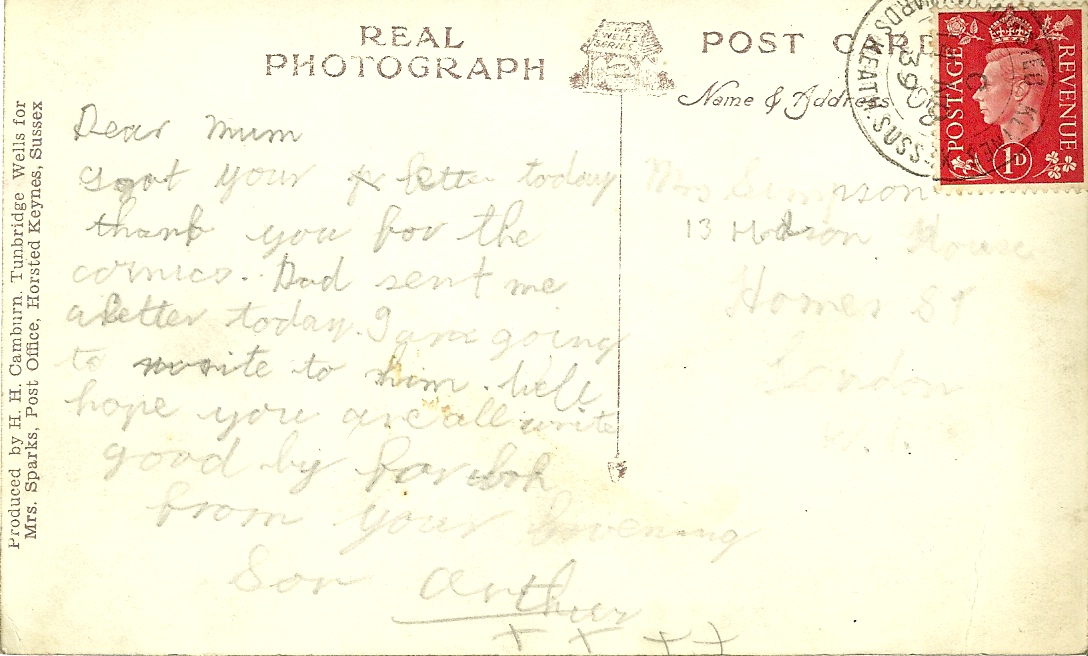 REAL
PHOTOGRAPH
THE
WELLS
SERIES
POST CARD
Name & Address
POSTAGE
REVENUE
1D
HEATH·SUSSEX
Produced by H. H. Camburn. Tunbridge Wells for
Mrs. Sparks, Post Office, Horsted Keynes, Sussex
Dear Mum
I got your letter today
thank you for the
comics. Dad sent me
a letter today. I am going
to write to him. Well
hope you are all write
good by for
from your lovening
Son Arthur
x x x x
Mrs Simpson
13 Hodson House
Homer St
London